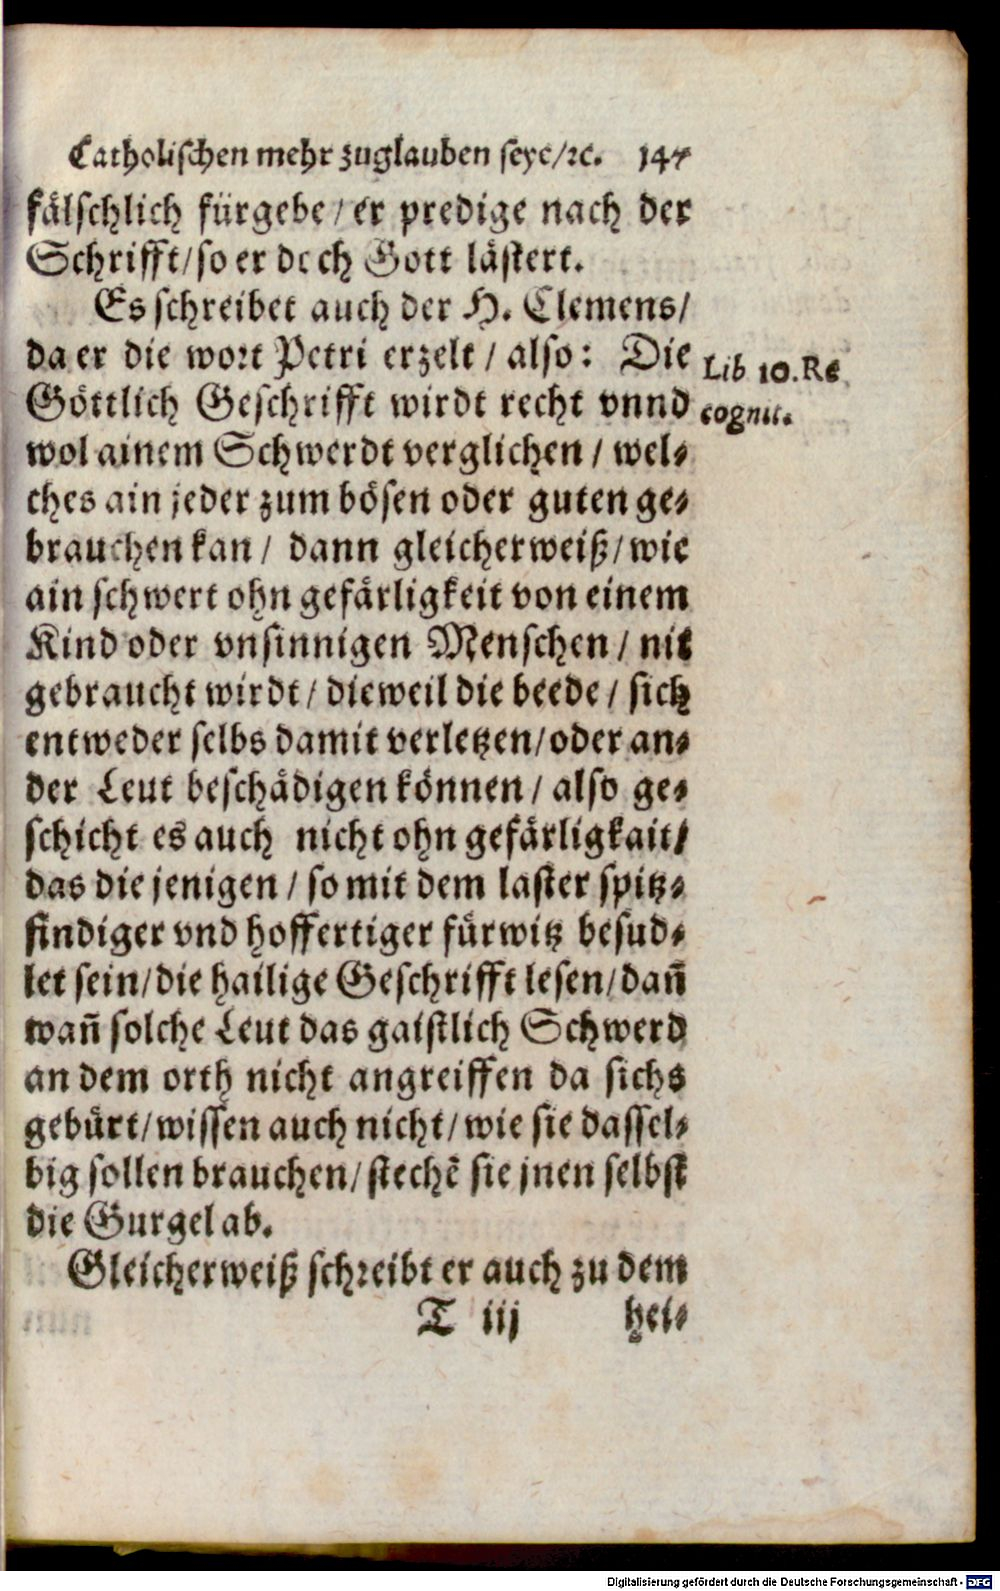 Catholischen mehr zuglauben seye/ꝛc. 147
fälschlich fürgebe / er predige nach der
Schrifft/so er doch Gott lästert.
Es schreibet auch der H. Clemens/
da er die wort Petri erzelt / also: Die
Lib 10. Re
Göttlich Geschrifft wirdt recht vnnd
cognit.
wol ainem Schwerdt verglichen / wel-
ches ain jeder zum bösen oder guten ge-
brauchen kan / dann gleicherweiß/wie
ain schwert ohn gefärligkeit von einem
Kind oder vnsinnigen Menschen / nit
gebraucht wirdt / dieweil die beede / sich
entweder selbs damit verletzen/oder an-
der Leut beschädigen können / also ge-
schicht es auch nicht ohn gefärligkait/
das die jenigen / so mit dem laster spitz-
findiger vnd hoffertiger fürwitz besud-
let sein/die hailige Geschrifft lesen/dañ
wañ solche Leut das gaistlich Schwerd
an dem orth nicht angreiffen da sichs
gebürt/wissen auch nicht/wie sie dassel-
big sollen brauchen/stechẽ sie jnen selbst
die Gurgel ab.
Gleicherweiß schreibt er auch zu dem
T iij hei-
Digitalisierung gefördert durch die Deutsche Forschungsgemeinschaft - DFG